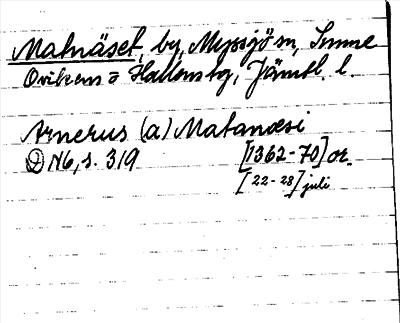 Matnäset, by, Myssjö sn, Sunne
Ovikens o Hallens tg, Jämtl. l.
Arnerus (a) Matanæsi
D N6, s. 319 [1362-70] or.
[22-28] juli